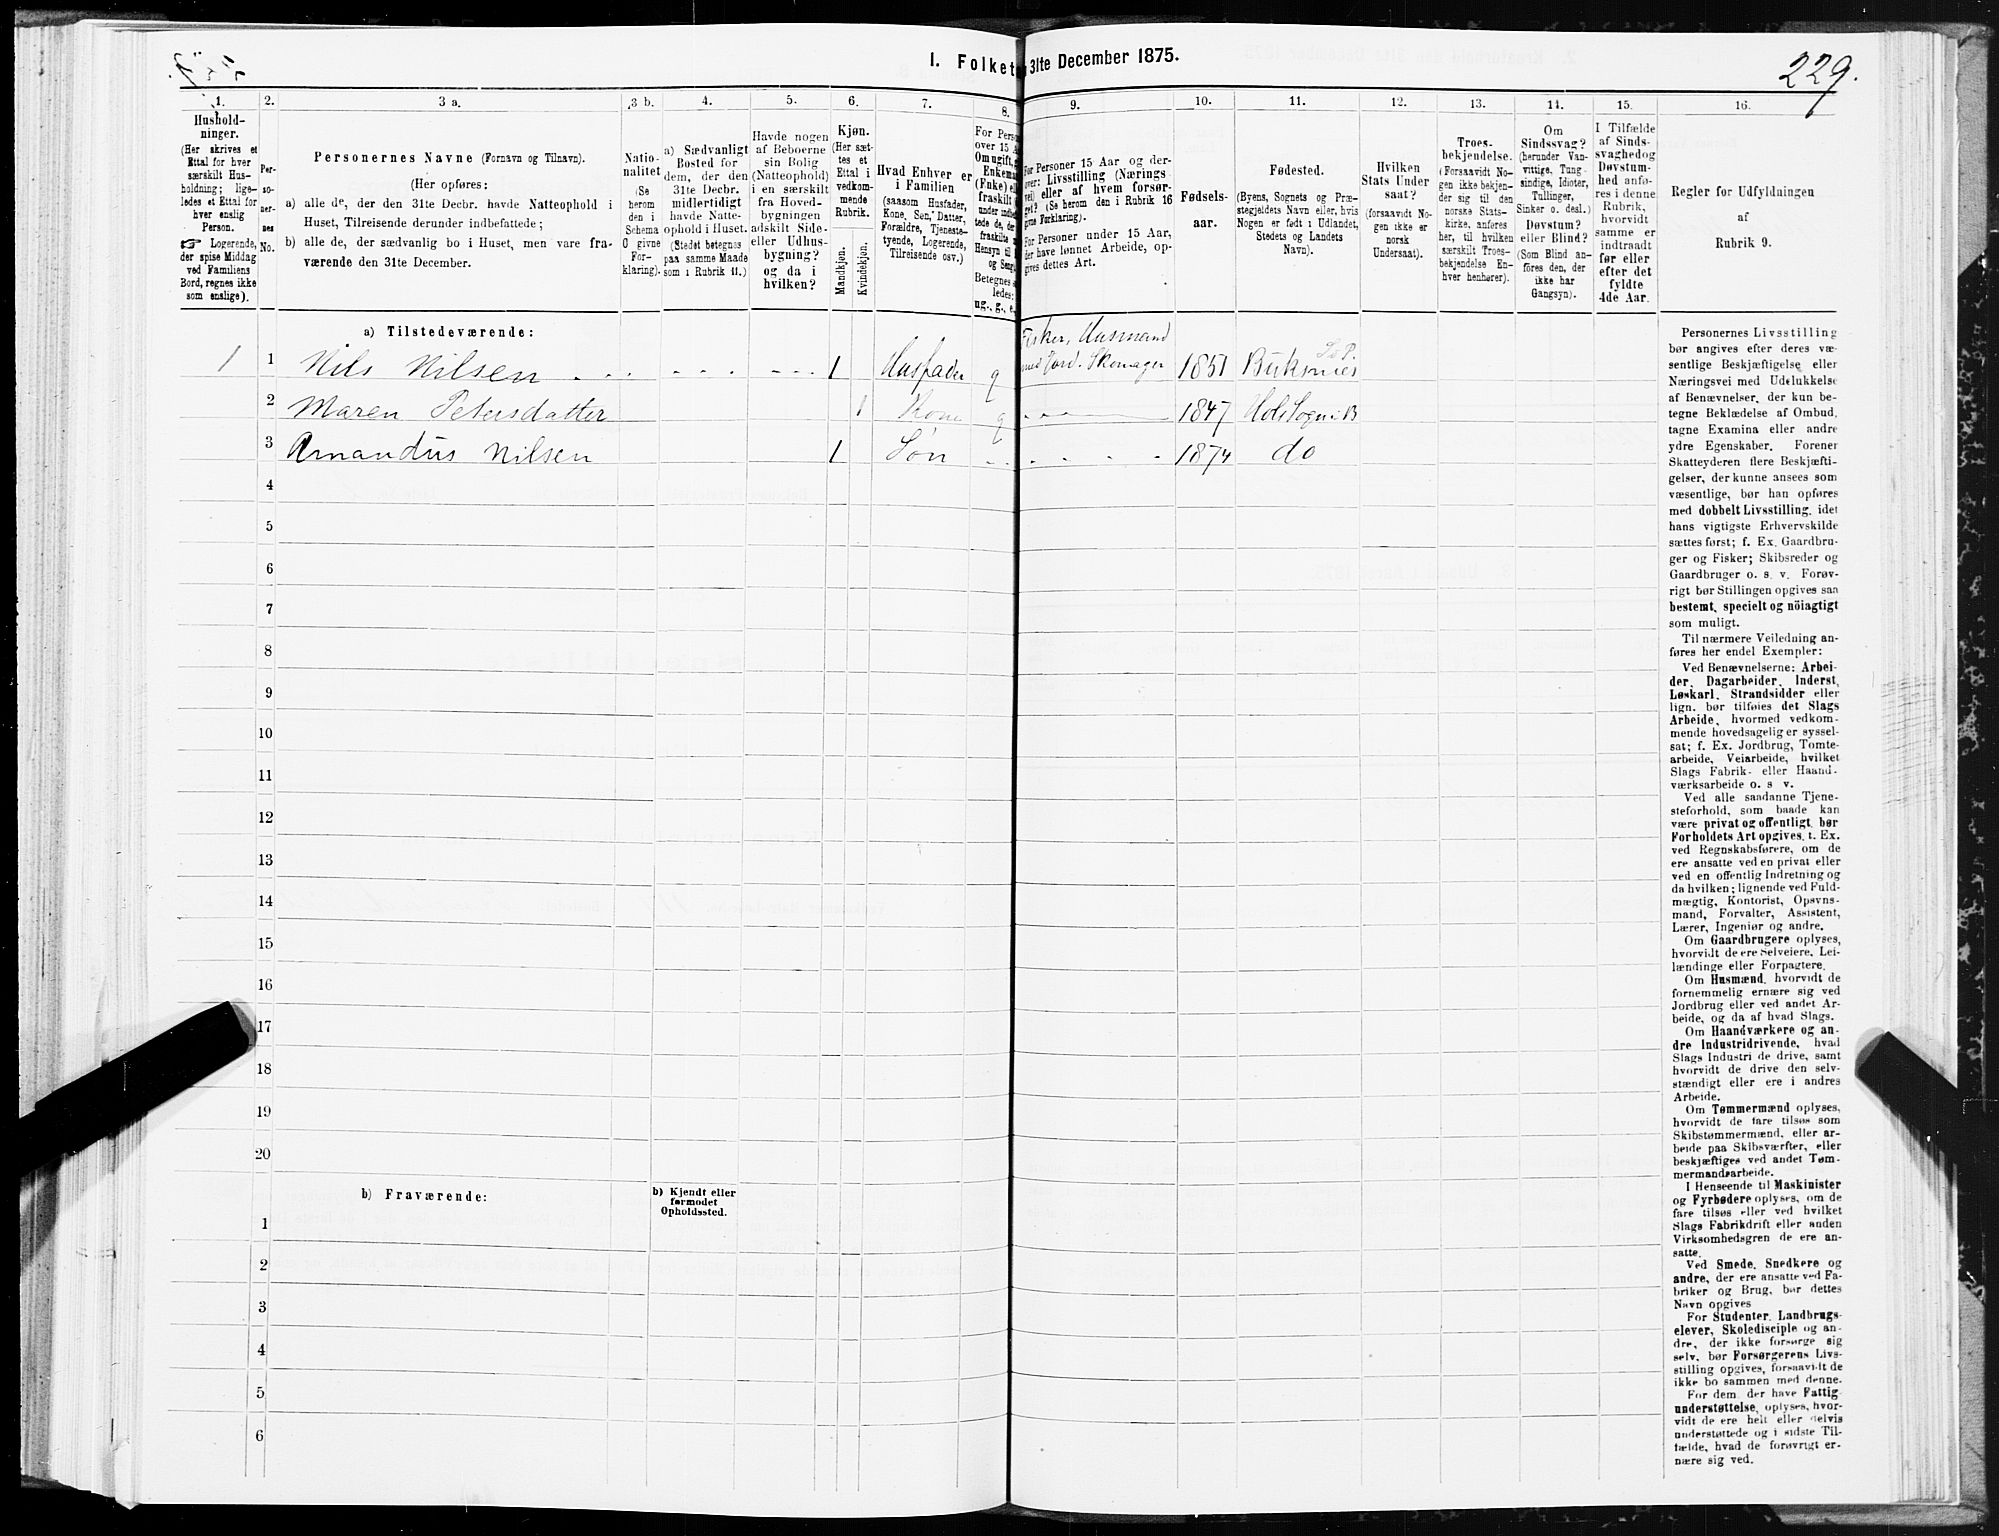 1. Folket
31te December 1875.
229.
1.
2.
3 a.
3 b.
4.
5.
6.
7.
8.
9.
10.
11.
12.
13.
14.
15.
16.
Hushold-
ninger.
(Her skrives et
Ettal for hver
særskilt Hus-
holdning; lige-
ledes et Ettal for
hver enslig
Person.
☞ Logerende,
der spise Middag
ved Familiens
Bord, regnes ikke
som enslige).
Per-
so-
ner-
nes
No.
Personernes Navne (Fornavn og Tilnavn).
(Her opføres:
a) alle de, der den 31te Decbr. havde Natteophold i
Huset, Tilreisende derunder indbefattede;
b) alle de, der sædvanlig bo i Huset, men vare fra-
værende den 31te December.
Natio-
nalitet
(Se
herom
den i
Schema
O givne
For-
klaring).
a) Sædvanligt
Bosted for
dem, der den
31te Decbr.
midlertidigt
havde Natte-
ophold i Huset.
(Stedet betegnes
paa samme Maade
som i Rubrik 11.)
Havde nogen
af Beboerne
sin Bolig
(Natteophold)
i en særskilt
fra Hoved-
bygningen
adskilt Side-
eller Udhus-
bygning?
og da i
hvilken?
Kjøn.
(Her sæt-
tes et
Ettal i
vedkom-
mende
Rubrik.
Mandkjøn.
Kvindekjøn.
Hvad Enhver er
i Familien
(saasom Husfader,
Kone, Søn, Datter,
Forældre, Tjeneste-
tyende, Logerende,
Tilreisende osv.)
For Perso
over 15 A
Om ugift, g
Enkema
(Enke) el
fraskilt
under indbe
tede de, der
fraskilte
Hensyn til
og Seng
Betegnes s
ledes:
ug., g., e.
For Personer 15 Aar og der-
over: Livsstilling (Nærings
vei) eller af hvem forsør-
get? (Se herom den i Rubrik 16
givne Forklaring).
For Personer under 15 Aar,
der have lønnet Arbeide, op-
gives dettes Art.
Fødsels-
aar.
Fødested.
(Byens, Sognets og Præ-
stegjeldets Navn eller, hvis
Nogen er født i Udlandet,
Stedets og Landets
Navn).
Hvilken
Stats Under
saat?
(forsaavidt No-
gen ikke er
norsk
Undersaat).
Troes-
bekjendelse.
(Forsaavidt No-
gen ikke bekjen-
der sig til den
norske Stats-
kirke, anføres
her, til hvilken
særskilt Troes-
bekjendelse En-
hver henhører).
Om
Sindssvag?
(herunder Van-
vittige, Tung-
sindige, Idioter,
Tullinger,
Sinker o. desl.)
Døvstum?
eller Blind?
(Som Blind an-
føres den, der
ikke har
Gangsyn).
I Tilfælde
af Sinds-
svaghed og
Døvstum-
hed anfø-
res i denne
Rubrik,
hvorvidt
samme er
indtraadt
før eller
efter det
fyldte
4de Aar.
Regler for Udfyldningen
af
Rubrik 9.
a) Tilstedeværende:
1 1 Nils Nilsen 1 Husfader g Fisker, Husmand med Jord. Skomager 1851 Buksnes
2 Maren Petersdatter 1 Kone g 1847 Hols Sogn i B
3 Amandus Nilsen 1 Søn 1874 do
4
5
6
7
8
9
10
11
12
13
14
15
16
17
18
19
20
b) Fraværende:
b) Kjendt eller
formodet
Opholdssted.
1
2
3
4
5
6
Personernes Livsstilling
bør angives efter deres væ-
sentlige Beskjæftigelse eller
Næringsvei med Udelukkelse
af Benævnelser, der kun be-
tegne Beklædelse af Ombud,
tagne Examina eller andre
ydre Egenskaber. Forener
Skatteyderen flere Beskjæfti-
gelser, der kunne ansees som
væsentlige, bør han opføres
med dobbelt Livsstilling, idet
hans vigtigste Erhvervskilde
sættes først; f. Ex. Gaardbru-
ger og Fisker; Skibsreder og
Gaardbruger o. s. v. Forøv-
rigt bør Stillingen opgives saa
bestemt, specielt og nöiagtigt
som muligt.
Til nærmere Veiledning an-
føres her endel Exempler:
Ved Benævnelserne: Arbei-
der, Dagarbeider, Inderst,
Løskarl, Strandsidder eller
lign. bør tilføies det Slags
Arbeide, hvormed vedkom-
mende hovedsagelig er syssel-
sat; f. Ex. Jordbrug, Tomte-
arbeide, Veiarbeide, hvilket
Slags Fabrik- eller Haand-
værksarbeide o. s v.
Ved alle saadanne Tjene-
steforhold, som baade kan
være privat og offentligt, bør
Forholdets Art opgives, t. Ex.
ved Regnskabsførere, om de
ere ansatte ved en privat eller
ved en offentlig Indretning og
da hvilken; lignende ved Fuld-
mægtig, Kontorist, Opsyns-
mand, Forvalter, Assistent,
Lærer, Ingeniør og andre.
Om Gaardbrugere oplyses,
hvorvidt de ere Selveiere, Lei-
lændinge eller Forpagtere.
Om Husmænd, hvorvidt de
fornemmelig ernære sig ved
Jordbrug eller ved andet Ar-
beide, og da af hvad Slags.
Om Haandværkere og an-
dre Industridrivende, hvad
Slags Industri de drive, samt
hvorvidt de drive den selv-
stændigt eller ere i andres
Arbeide.
Om Tømmermænd oplyses,
hvorvidt de fare tilsøs som
Skibstømmermænd, eller ar-
beide paa Skibsværfter, eller
beskjæftiges ved andet Tøm-
mermandsarbeide.
I Henseende til Maskinister
og Fyrbødere oplyses, om de
fare tilsøs eller ved hvilket
Slags Fabrikdrift eller anden
Virksomhedsgren de ere an-
satte.
Ved Smede, Snedkere og
andre, der ere ansatte ved Fa-
briker og Brug, bør dettes
Navn opgives
For Studenter, Landbrugs-
elever, Skoledisciple og an-
dre, der ikke forsørge sig
selv, bør Forsørgerens Livs-
stilling opgives, forsaavidt de
ikke bo sammen med denne.
For dem, der have Fattig-
understøttelse, oplyses, hvor-
vidt de ere helt eller delvis
understøttede og i sidste Til-
fælde, hvad de forøvrigt er-
nære sig ved.